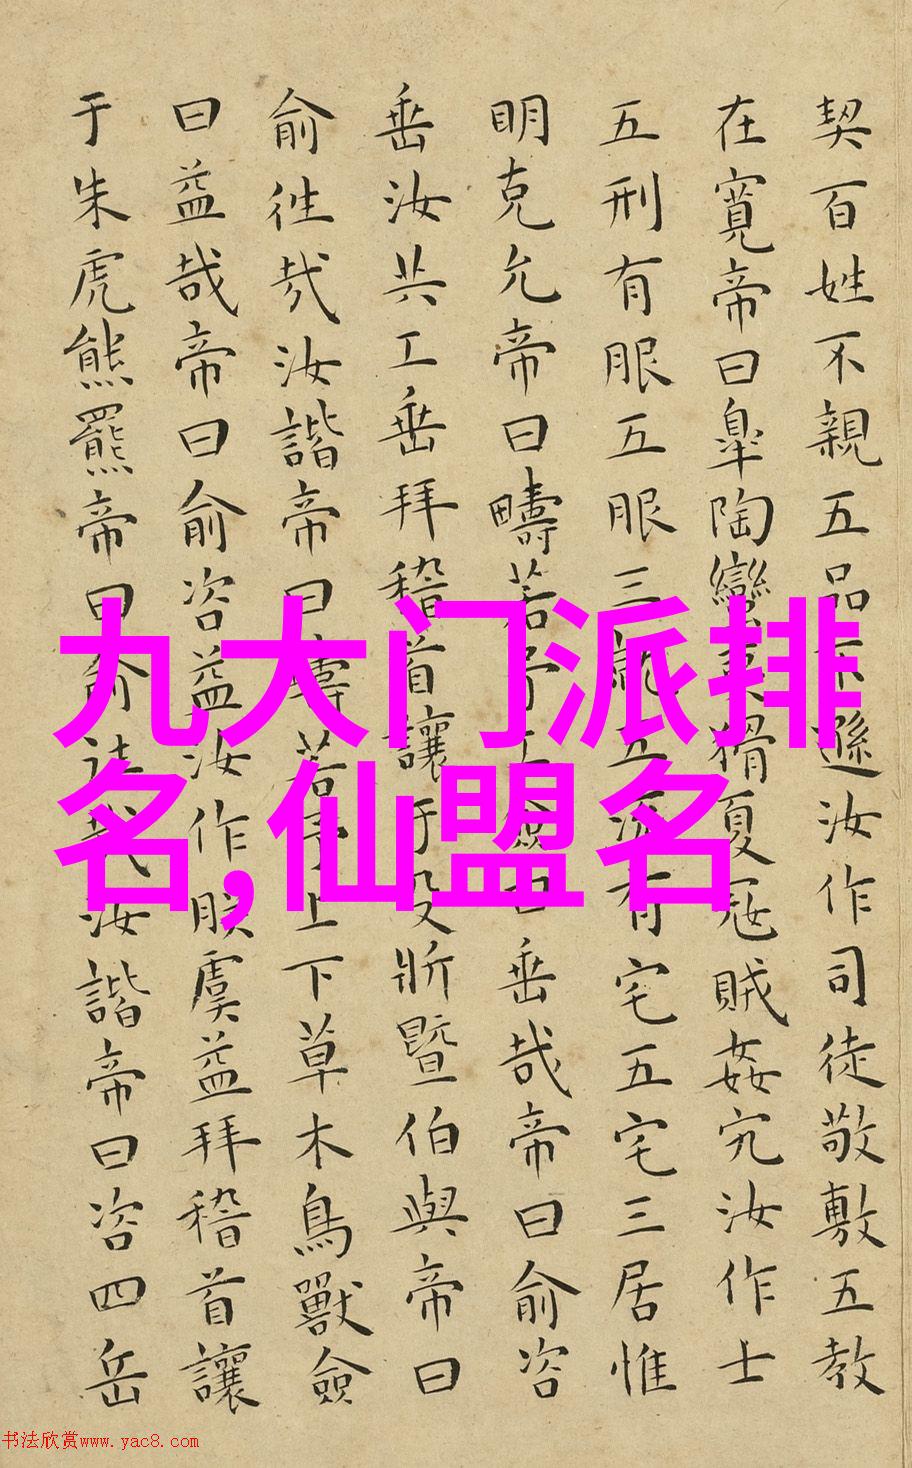 契百姓不親五品不遜汝作司徒敬敷五教
在寬帝曰皐陶蠻夷猾夏寇賊姦宄汝作士
五刑有服五服三就五流有宅五宅三居惟
明克允帝曰疇若予工僉曰垂哉帝曰俞咨
垂汝共工垂拜稽首讓于殳斨暨伯與帝曰
俞往哉汝諧帝曰疇若予上下草木鳥獸僉
曰益哉帝曰俞咨益汝作朕虞益拜稽首讓
于朱虎熊羆帝曰俞往哉汝諧帝曰咨四岳
九大门派排
名,仙盟名
书法欣赏www.yac8.com